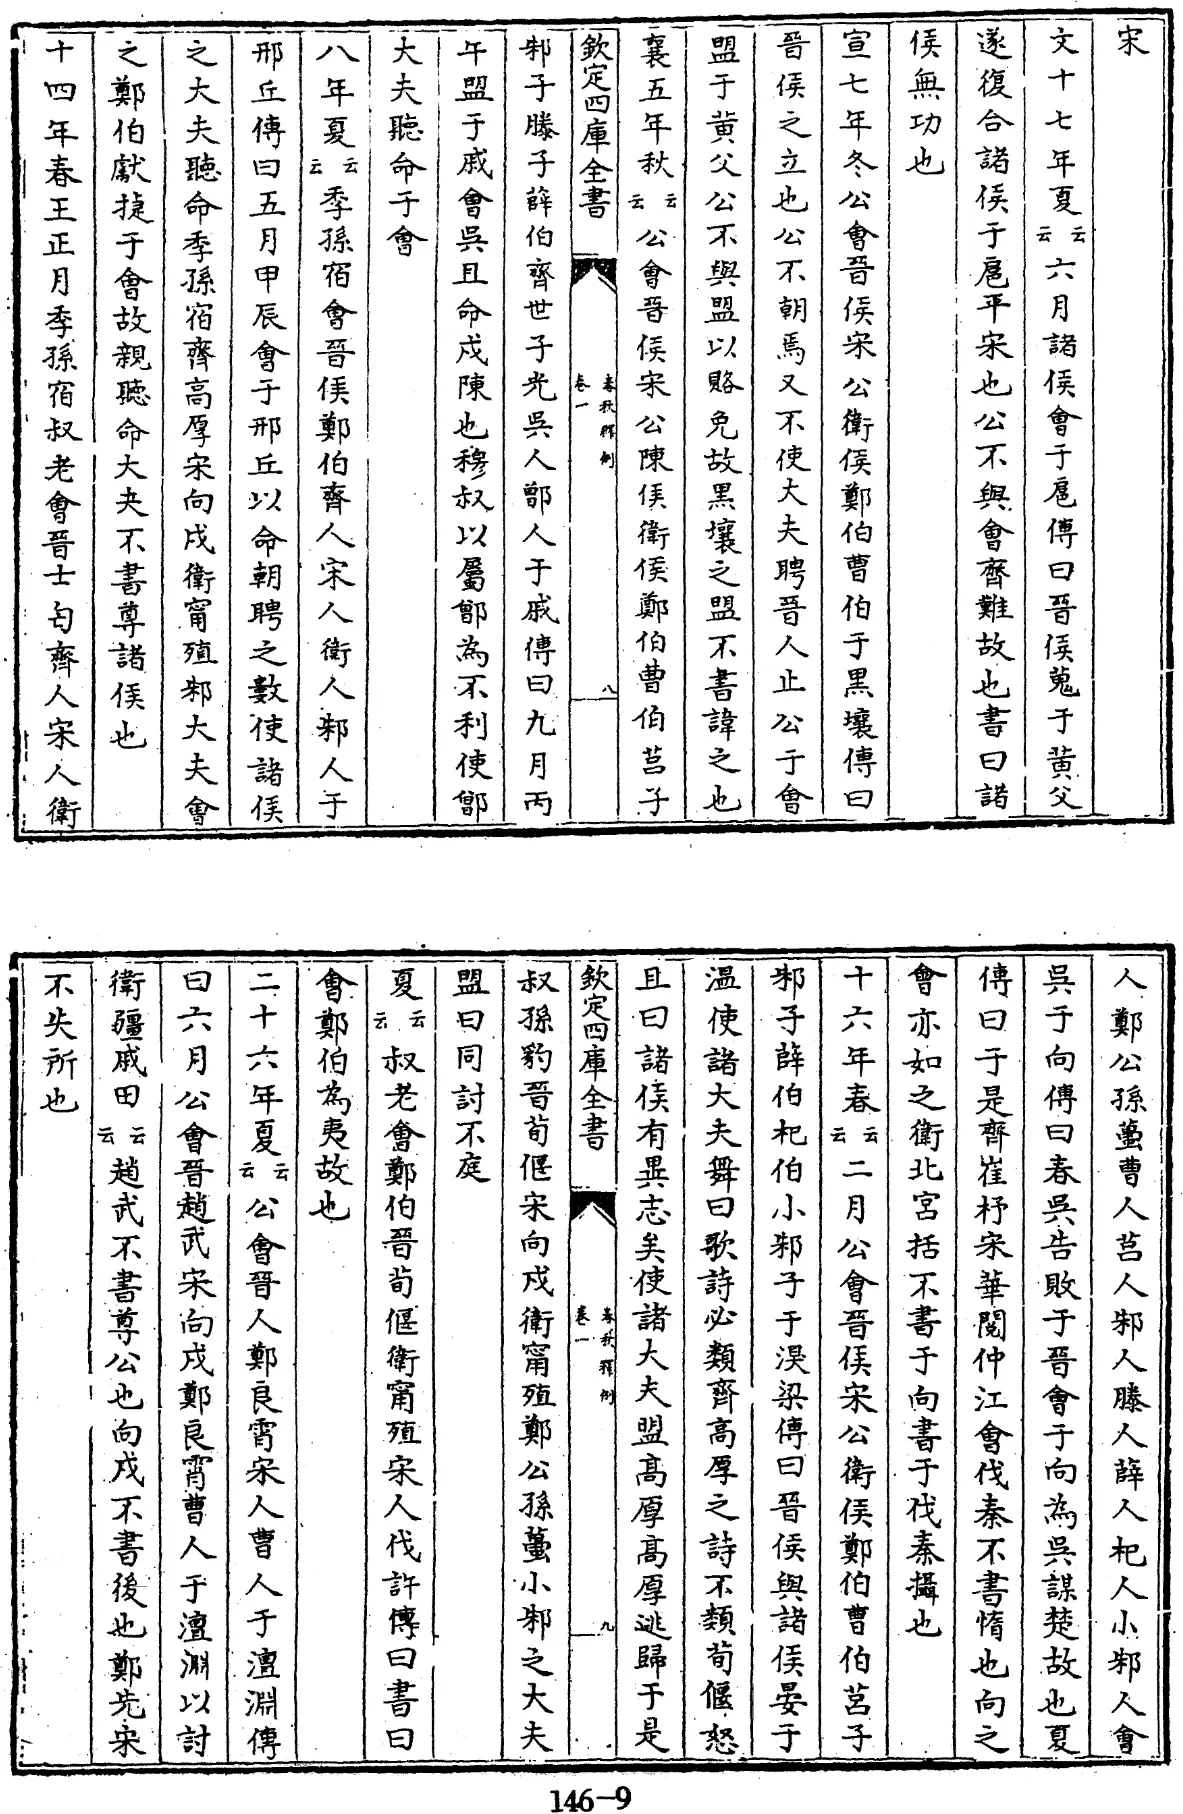 宋
文十七年夏云云六月諸侯會于扈傳曰晉侯蒐于黄父
遂復合諸侯于扈平宋也公不與會齊難故也書曰諸
侯無功也
宣七年冬公會晉侯宋公衛侯鄭伯曹伯于黒壤傳曰
晉侯之立也公不朝焉又不使大夫聘晉人止公于會
盟于黄父公不與盟以賂免故黒壤之盟不書諱之也
襄五年秋云云公會晉侯宋公陳侯衛侯鄭伯曹伯莒子
欽定四庫全書 春秋釋例 卷一 八
邾子滕子薛伯齊世子光吳人鄫人于戚傳曰九月丙
午盟于戚會吳且命戍陳也穆叔以屬鄫為不利使鄫
大夫聽命于會
八年夏云云季孫宿會晉侯鄭伯齊人宋人衛人邾人于
邢丘傳曰五月甲辰會于邢丘以命朝聘之數使諸侯
之大夫聽命季孫宿齊高厚宋向戌衛甯殖邾大夫會
之鄭伯獻捷于會故親聽命大夫不書尊諸侯也
十四年春王正月季孫宿叔老會晉士匄齊人宋人衛
人鄭公孫蠆曹人莒人邾人滕人薛人杞人小邾人會
吳于向傳曰春吳告敗于晉會于向為吳謀楚故也夏
傳曰于是齊崔杼宋華閱仲江會伐秦不書惰也向之
會亦如之衛北宮括不書于向書于伐秦攝也
十六年春云云二月公會晉侯宋公衛侯鄭伯曹伯莒子
邾子薛伯杞伯小邾子于湨梁傳曰晉侯與諸侯晏于
溫使諸大夫舞曰歌詩必類齊高厚之詩不類荀偃怒
且曰諸侯有異志矣使諸大夫盟髙厚髙厚逃歸于是
欽定四庫全書 春秋釋例 卷一 九
叔孫豹晉荀偃宋向戍衛甯殖鄭公孫蠆小邾之大夫
盟曰同討不庭
夏云云叔老會鄭伯晉荀偃衛甯殖宋人伐許傳曰書曰
會鄭伯為夷故也
二十六年夏云云公會晉人鄭良霄宋人曹人于澶淵傳
曰六月公會晉趙武宋向戍鄭良霄曹人于澶淵以討
衛疆戚田云云趙武不書尊公也向戍不書後也鄭先宋
不失所也
146-9